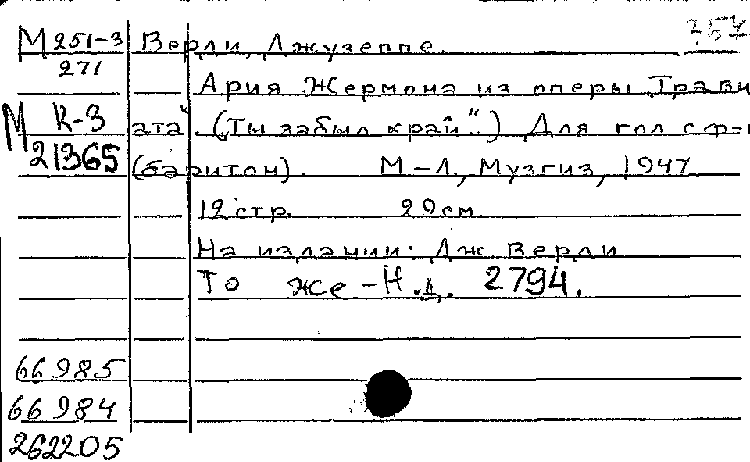 М 251-3 Верди, Джузеппе. 757
271
Ария Жермона из оперы „Трави
М К-3 ата". („Ты забыл край"..) Для гол. с ф-п
21365 (баритон). М-Л, Музгиз, 1947
12 стр. 29 см
На издании: Дж. Верди
То же - Н.д. 2794.
66985
66984
262205